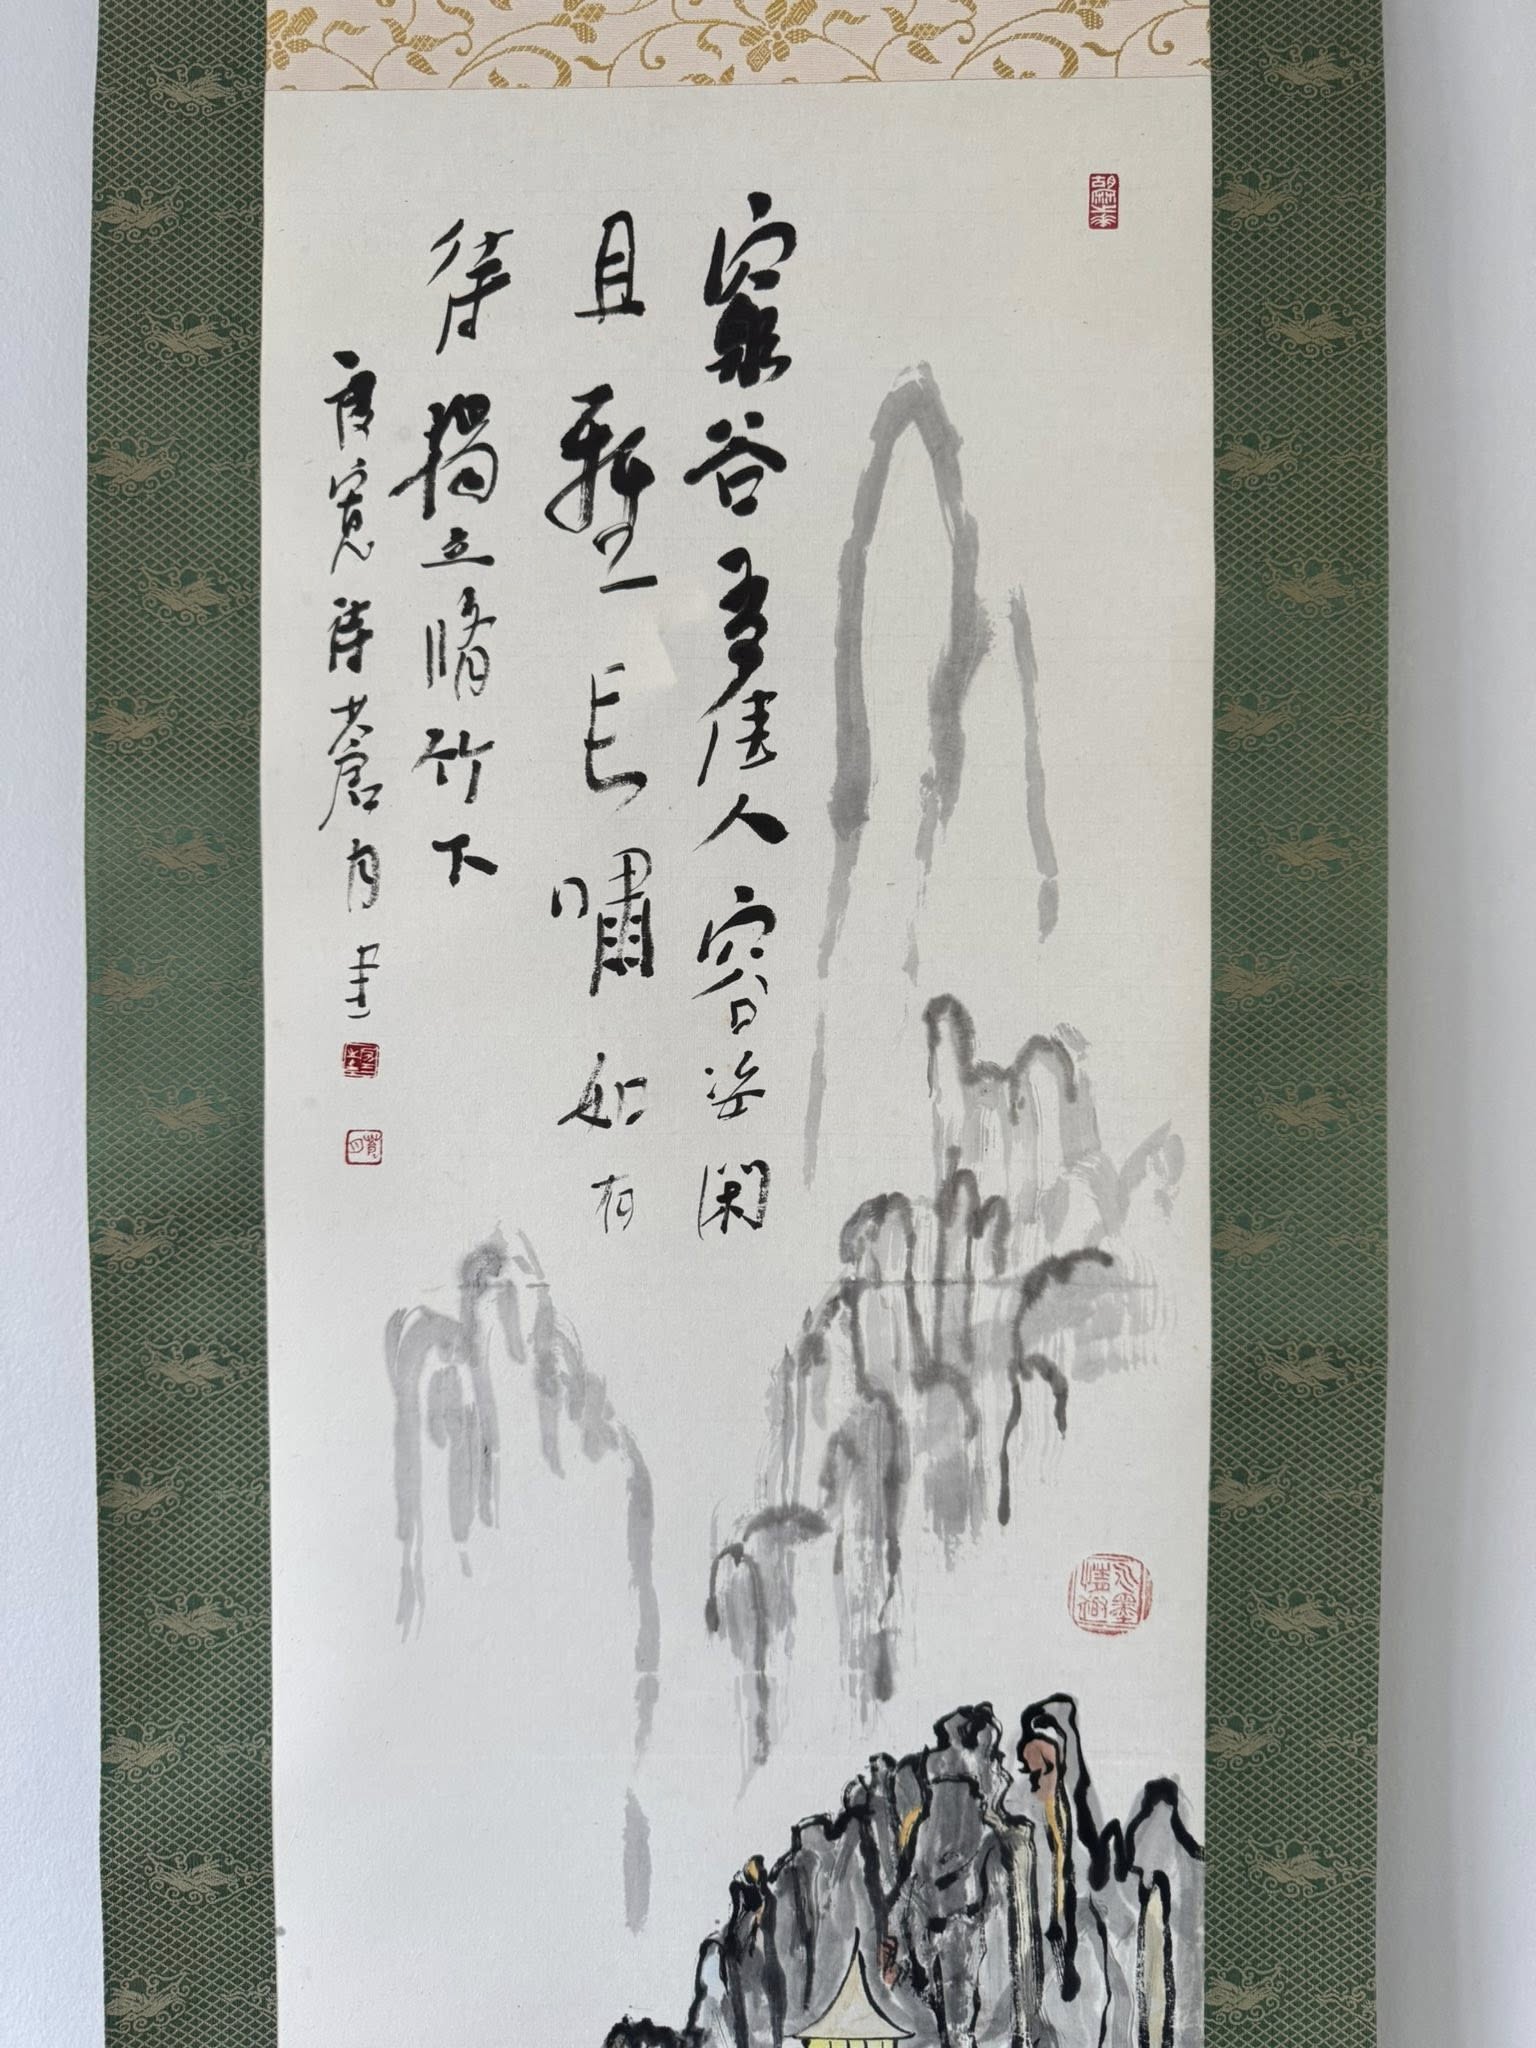 窮谷有佳人容姿閑
且雅長嘯如有
待獨立脩竹下
良寛詩蒼月書